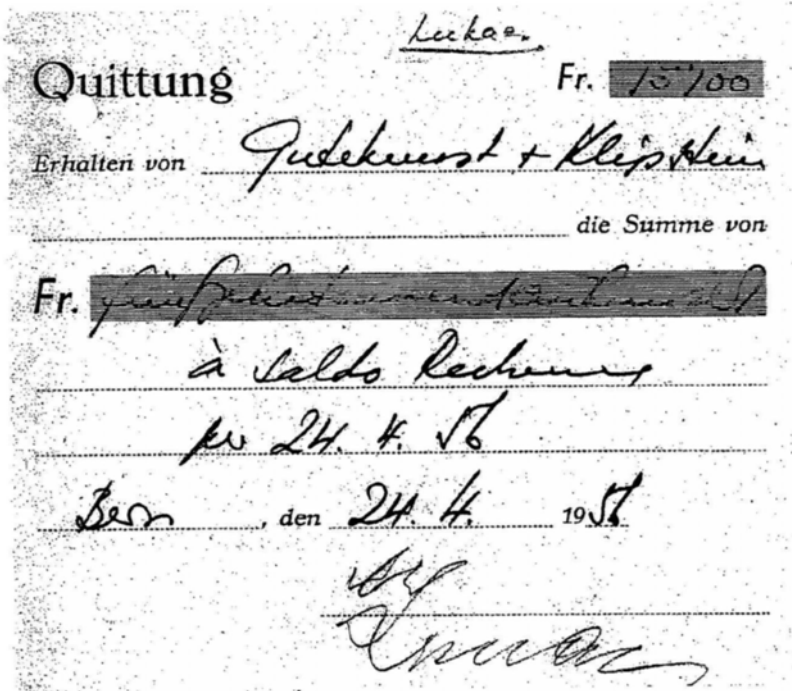 Lukacs
Quittung Fr. 15'100
Erhalten von Gutekunst + Klipstein
die Summe von
Fr.
à Saldo Rechnung
per 24. 4. 56
Bern, den 24. 4. 1956